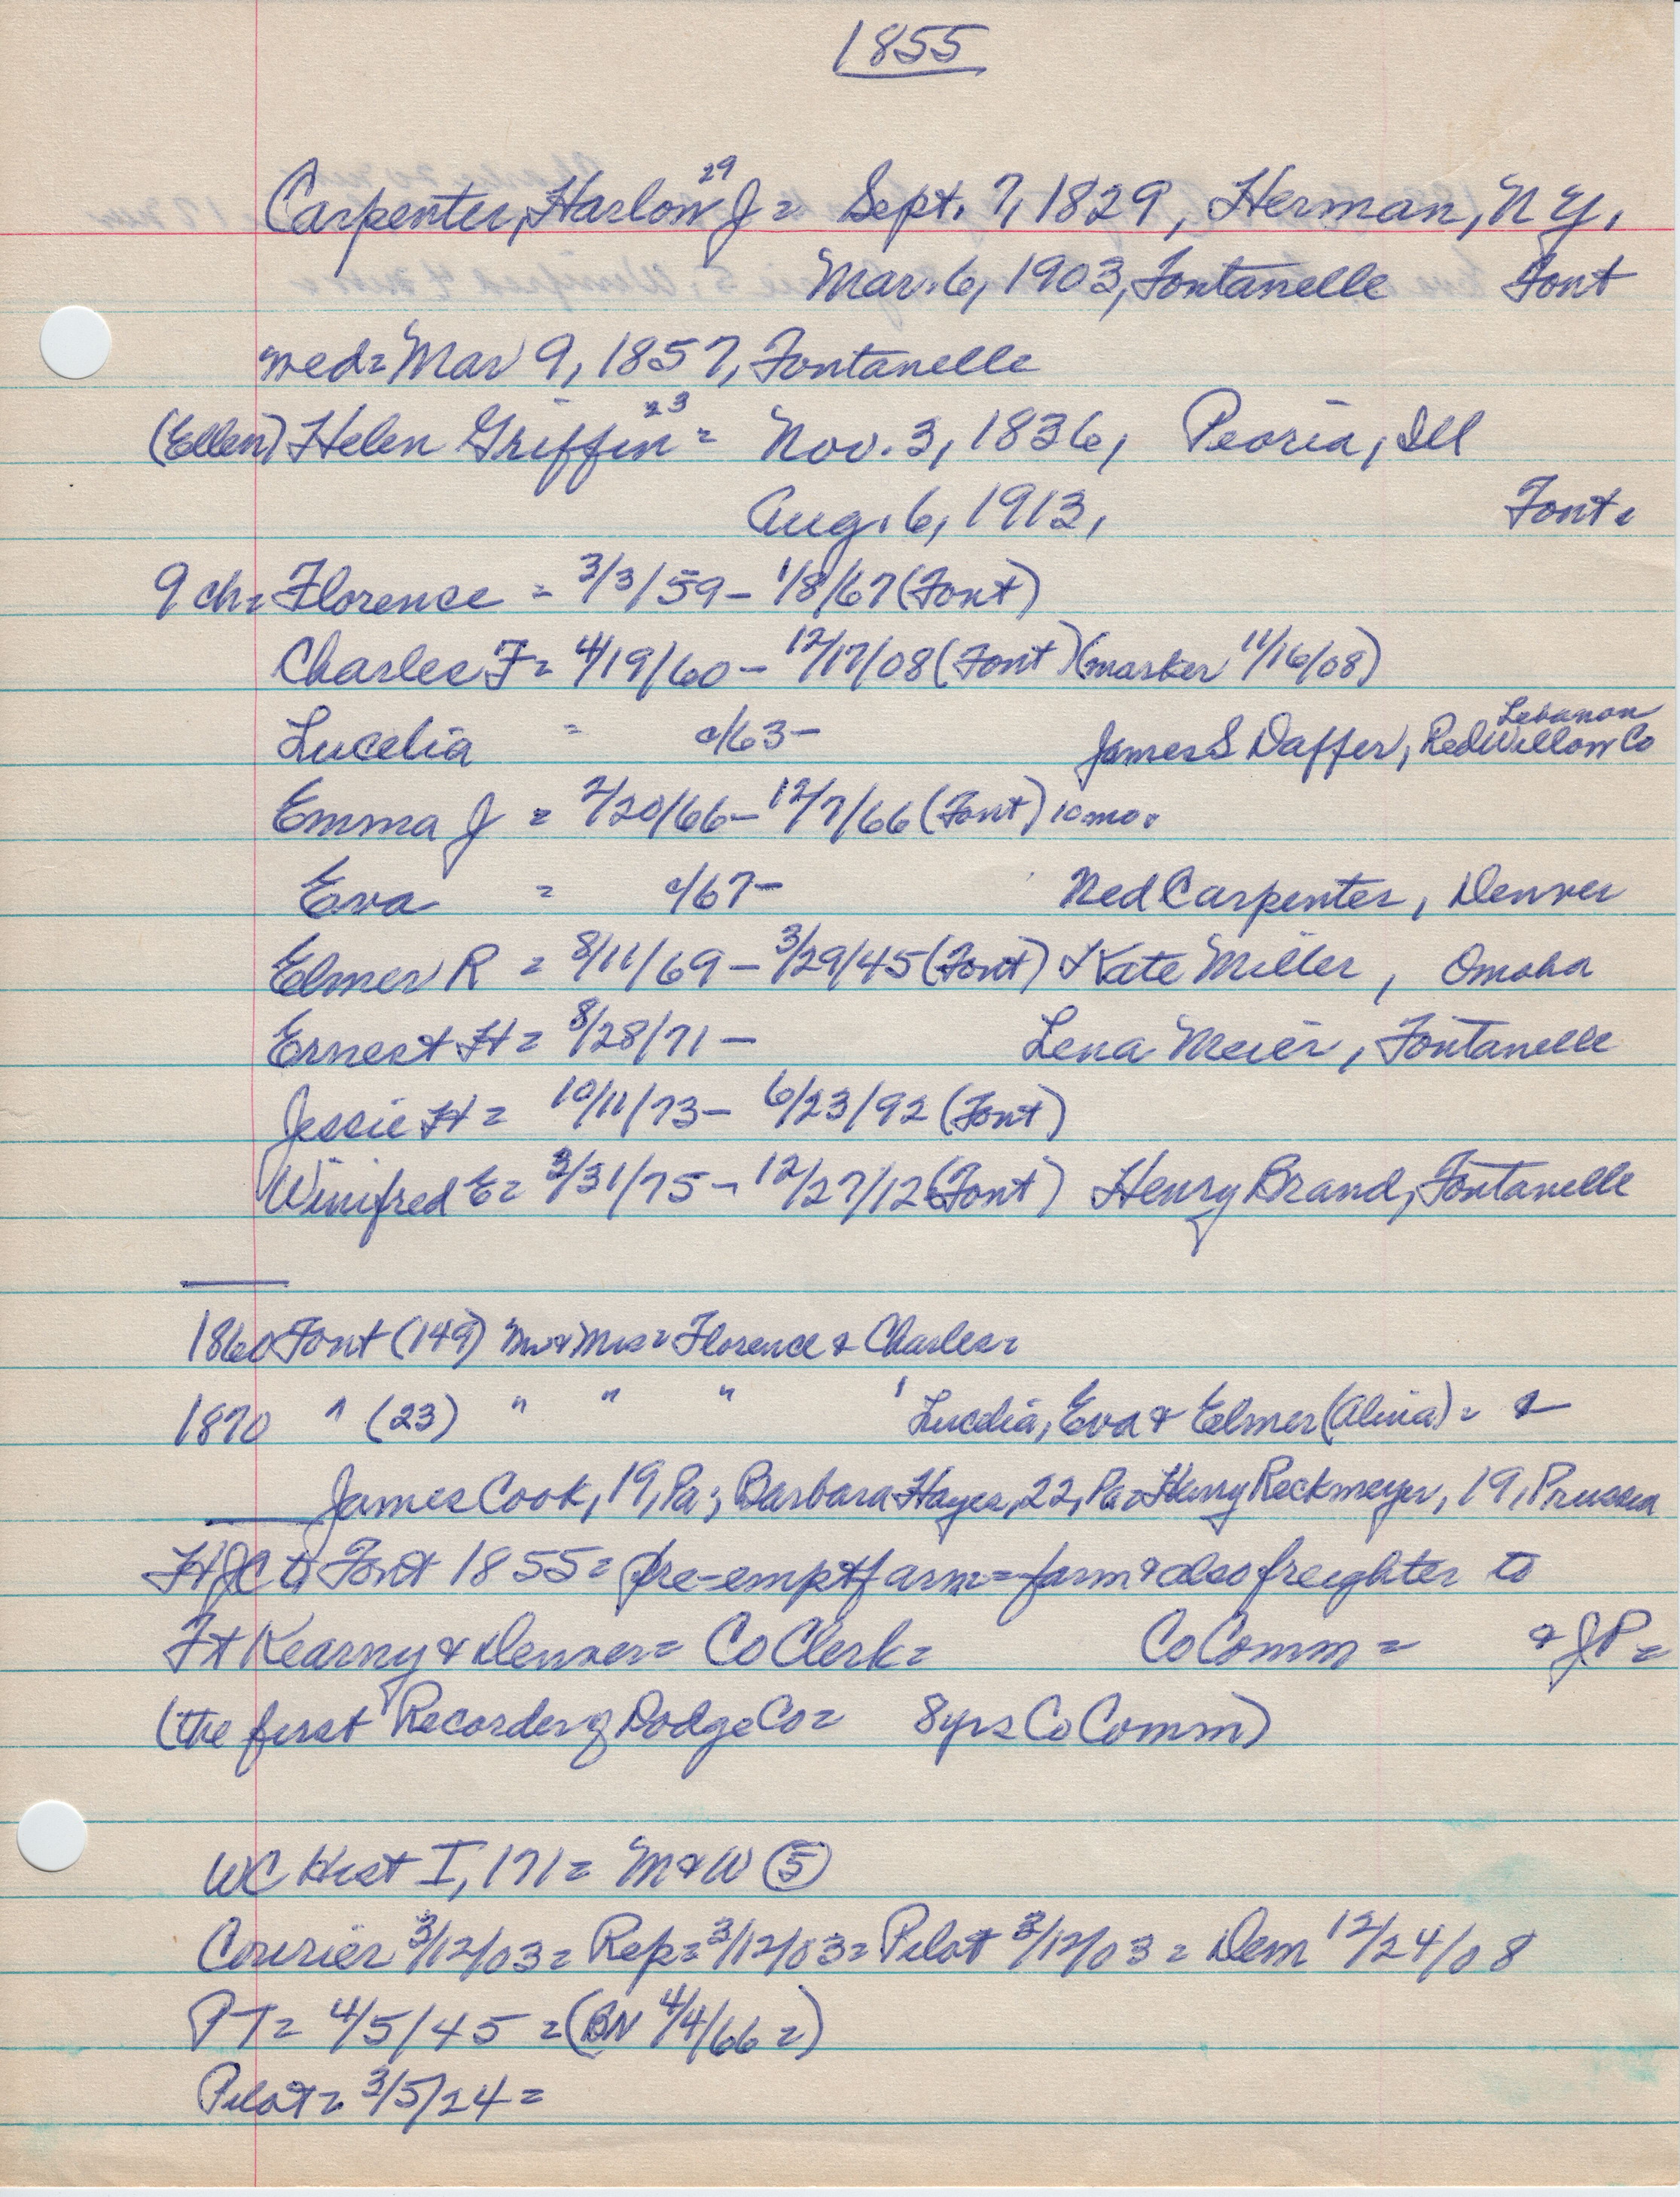 1855
29
Carpenter, Harlow J = Sept. 7, 1829, Herman, N Y.
Mar. 6, 1903, Fontanelle Font
med = Mar 9, 1857, Fontanelle
23
(Ellen) Helen Griffin = Nov. 3, 1836, Peoria, Ill
Aug. 6, 1913, Font.
9 ch = Florence = 3/3/59 - 1/8/67 (Font)
Charles F = 4/19/60 - 12/17/08 (Font) (marker 11/16/08)
Lebanon
Lucelia = c/63 - James S Daffer, Red Willow Co
Emma J = 2/20/66 - 12/7/66 (Font) 10 mo.
Eva = c/67 - Ned Carpenter, Denver
Elmer R = 8/11/69 - 3/29/45 (Font) Kate Miller, Omaha
Ernest H = 8/28/71 - Lena Meier, Fontanelle
Jessie H = 10/11/73 - 6/23/92 (Font)
Winifred E = /31/75 - 12/27/12 (Font) Henry Brand, Fontanelle
1860 Font (149) Mr & Mrs = Florence & Charles =
1870 " (23) " " " ' Lucelia, Eva & Elmer (Alivia) = &
James Cook, 19, Pa; Barbara Hayes, 22, Pa = Henry Reckmeyer, 19, Prussia
HJC to Font 1855 = pre-empt farm = farm & also freighter to
Ft Kearny & Denver = Co Clerk = Co Comm = & JP =
(the first Recorder of Dodge Co = 8 yrs Co Comm)
WC Hist I, 171 = M & W (5)
Courier 3/12/03 = Rep = 3/12/03 = Pilot 3/12/03 = Dem 12/24/08
PT = 4/5/45 = (BN 4/4/66 =)
Pilot = 3/5/24 =